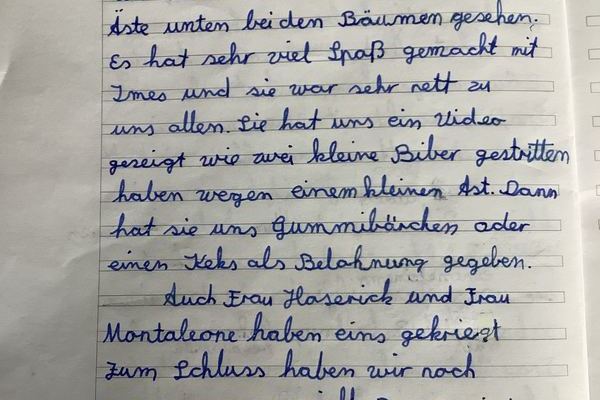 Äste unten bei den Bäumen gesehen.
Es hat sehr viel Spaß gemacht mit
Imes und sie war sehr nett zu
uns allen. Sie hat uns ein Video
gezeigt wie zwei kleine Biber gestritten
haben wegen einem kleinen Ast. Dann
hat sie uns Gummibärchen oder
einen Keks als Belohnung gegeben.
Auch Frau Haserick und Frau
Montaleone haben eins gekriegt
Zum Schluss haben wir noch